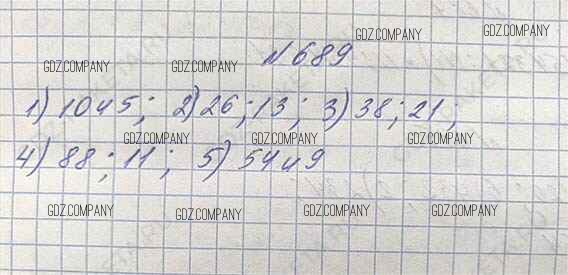 №689
1) 10 и 5; 2) 26; 13; 3) 38; 21;
4) 88; 11; 5) 54 и 9
GDZ.COMPANY
GDZ.COMPANY
GDZ.COMPANY
GDZ.COMPANY
GDZ.COMPANY
GDZ.COMPANY
GDZ.COMPANY
GDZ.COMPANY
GDZ.COMPANY
GDZ.COMPANY
GDZ.COMPANY